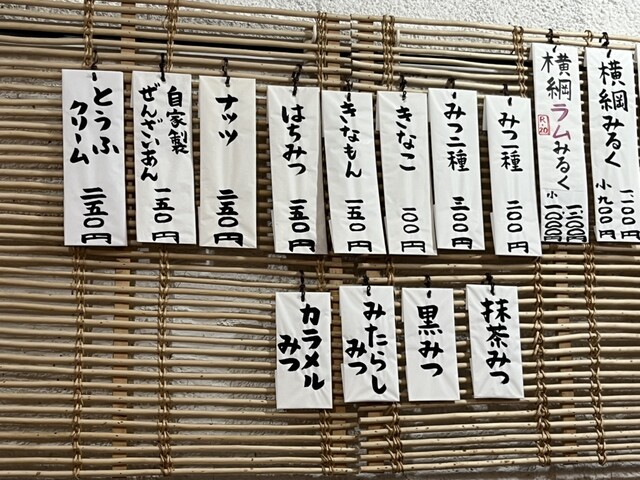 横綱みるく
一一〇〇円
小九〇〇円
横綱ラムみるく
R・20
一二〇〇円
小一〇〇〇円
みつ一種
二〇〇円
みつ二種
三〇〇円
きなこ
一〇〇円
きなもん
一五〇円
はちみつ
一五〇円
ナッツ
二五〇円
自家製
ぜんざいあん
一五〇円
とうふ
クリーム
二五〇円
抹茶みつ
黒みつ
みたらし
みつ
カラメル
みつ